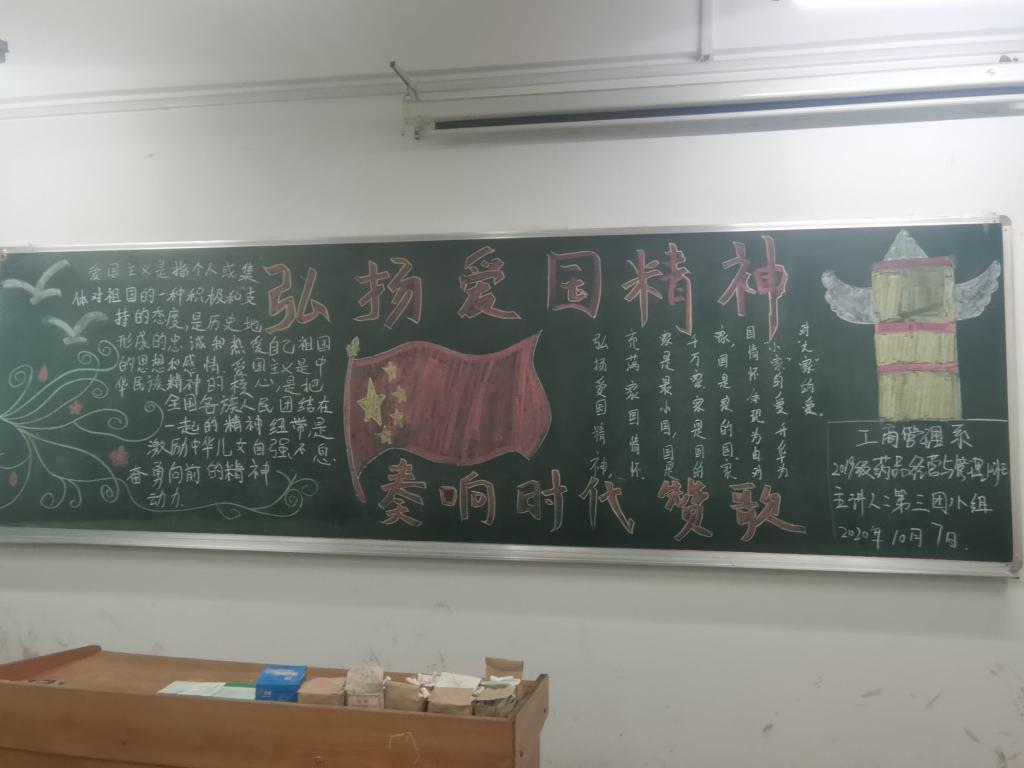 弘扬爱国精神
爱国主义是指个人或集
体对祖国的一种积极和支
持的态度,是历史地
形成的忠诚和热爱自己祖国
的思想和感情。爱国主义是中
华民族精神的核心,是把
全国各族人民团结在
一起的精神纽带是
激励中华儿女自强不息
奋勇向前的精神
动力
对大家的爱。
"小家"的爱,升华为
国情怀,体现为由对
家,国是家的国。家
千万家。家是国的
家是最小国,国是
充满家国情怀
弘扬爱国精神
奏响时代赞歌
工商管理系
2019级药品经营与管理班
主讲人:第三团小组
2020年10月7日.